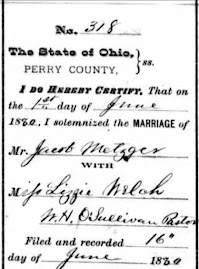 No. 318
The State of Ohio,
PERRY COUNTY, } ss.
I DO HEREBY CERTIFY, That on
the 1st day of June
1880, I solemnized the MARRIAGE of
Mr. Jacob Metzger
WITH
Miss Lizzie Welch
W.H. O'Sullivan Pastor
Filed and recorded 16"
day of June 1880